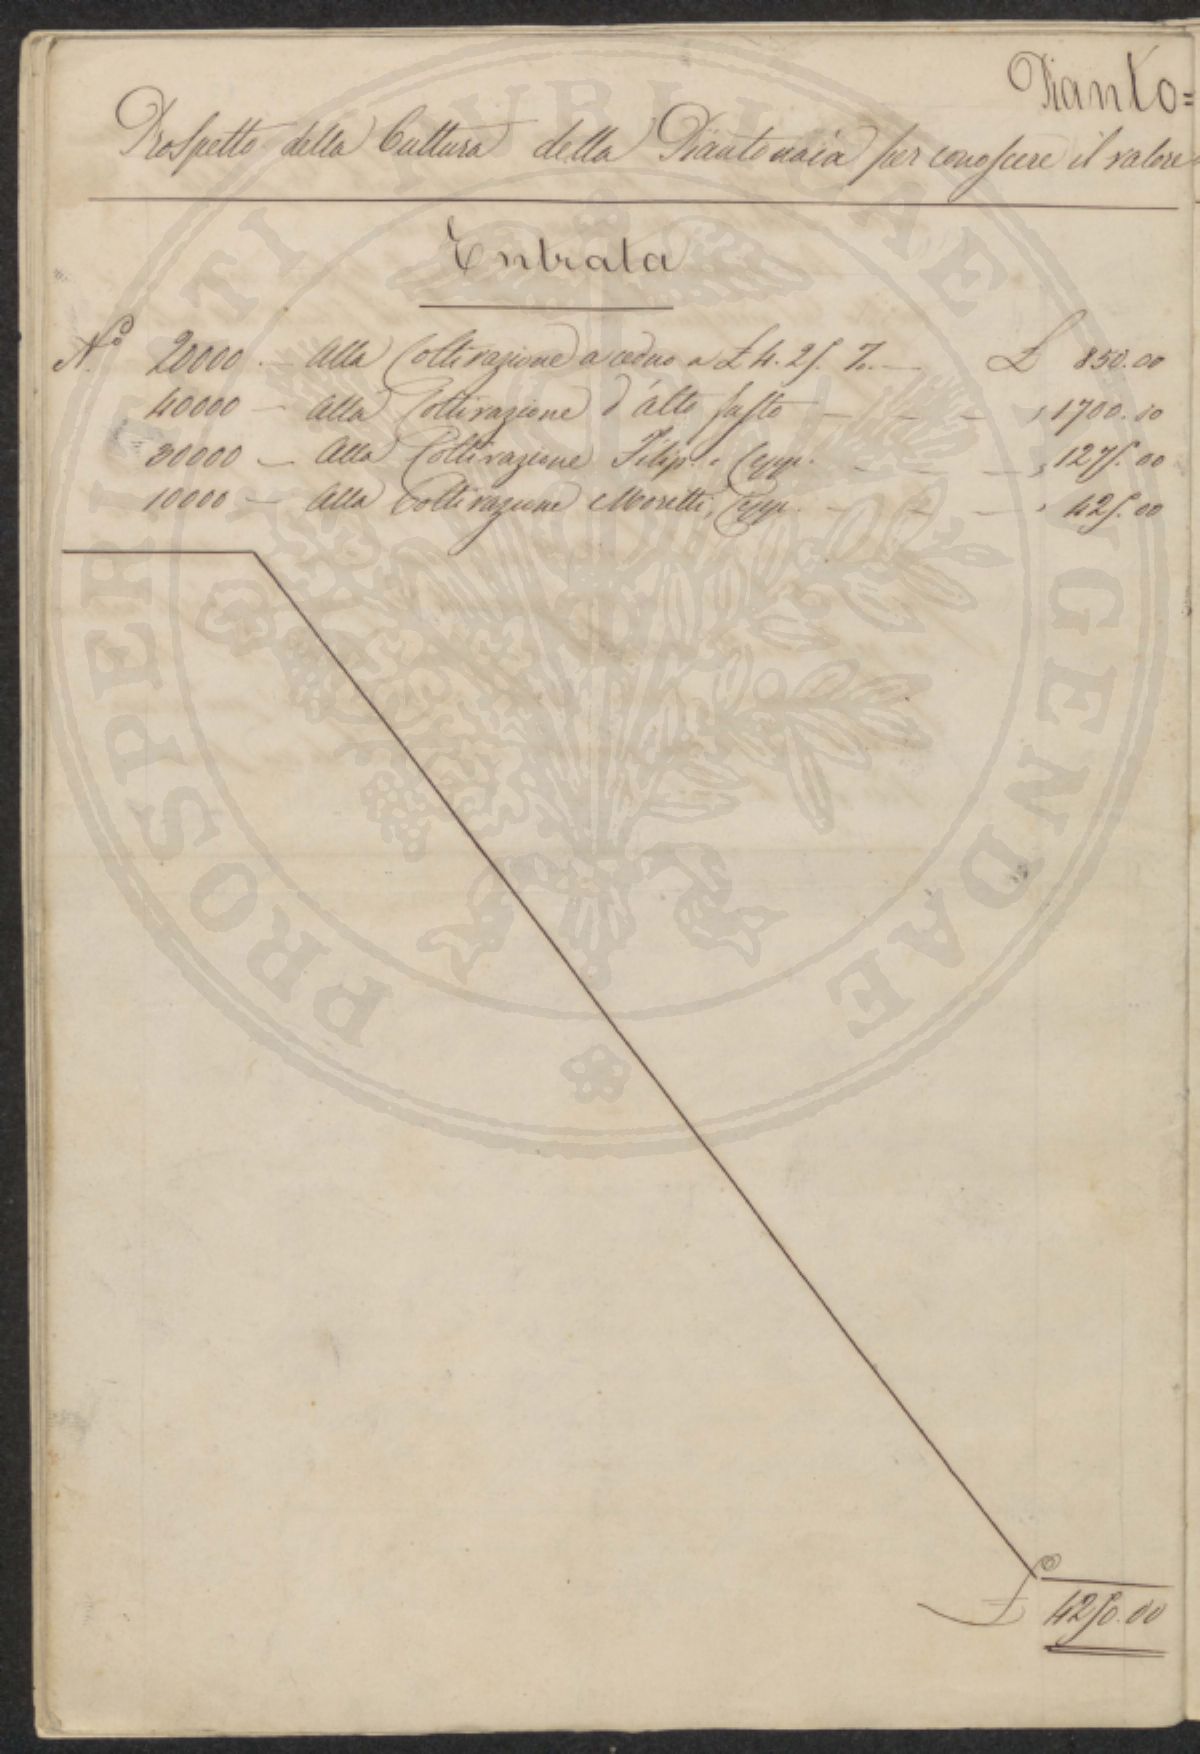 Pianto=
Prospetto della Cultura della Piantonaia per conoscere il valore
Entrata
N.º 20000 — Alla Coltivazione a ceduo a £ 4.25. %. — £ 850.00
40000 — Alla Coltivazione d'alto fusto — — — , 1700.00
30000 — Alla Coltivazione Filip. Cepp. — — , 1275.00
10000 — Alla Coltivazione Moretti, Cepp. — — — , 425.00
£ 4250.00
PROSPERITATI PUBLICAE AUGENDAE